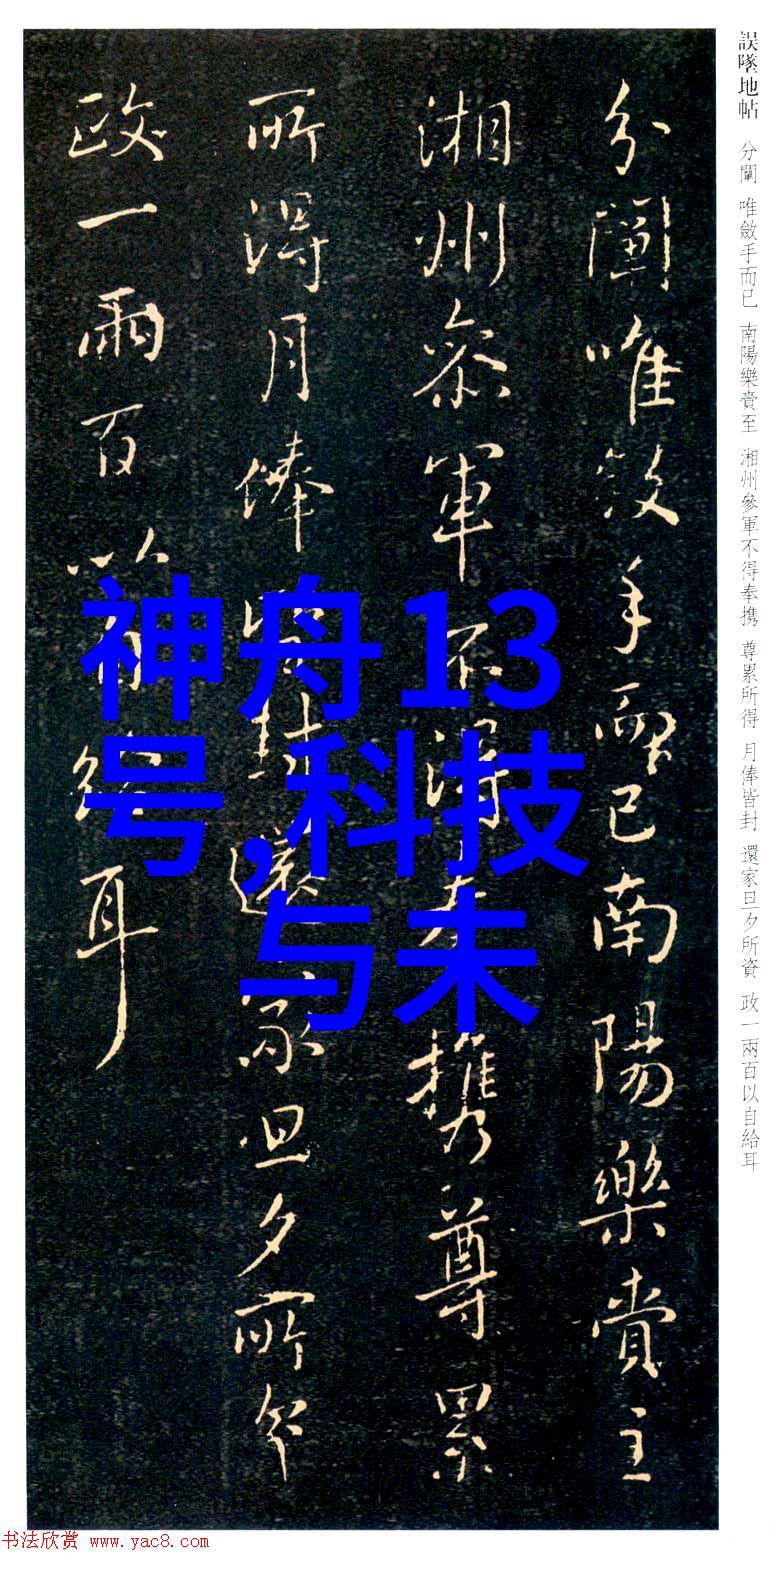 誤墜地帖 分闡 唯斂手而已 南陽樂賞至 湘州參軍不得奉携 尊累所得 月俸皆封 還家旦夕所資 政一兩百以自給耳
分闡唯斂手而已南陽樂賞至
湘州參軍不得奉携尊累
所得月俸皆封還家旦夕所資
政一兩百以自給耳
神舟13
号,科技
与未
书法欣赏 www.yac8.com